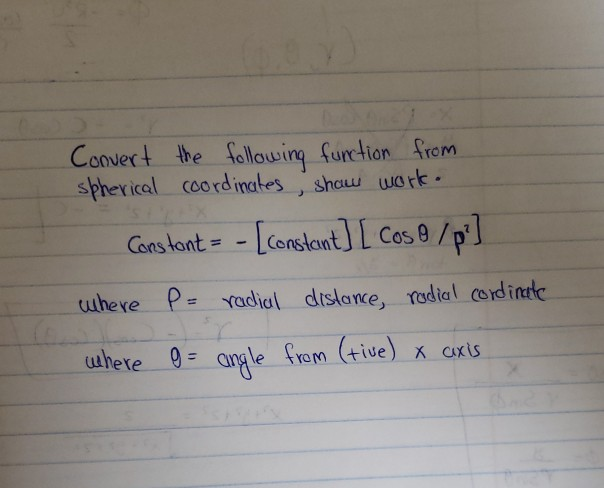 Convert the following function from
spherical coordinates, show work.
Constant = - [Constant] [Cos θ / ρ²]
where ρ = radial distance, radial cordinate
where θ = angle from (+ive) x axis